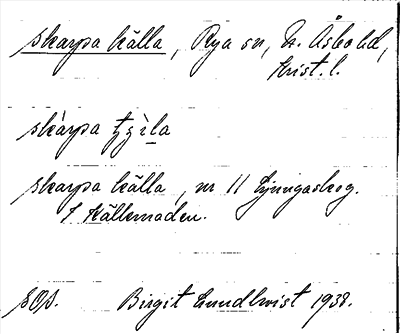 skarpa källa, Rya sn, N. Åsbo hd,
Krist. l.
skàrpa
skarpa källa, nr 11 Ljungaskog.
I Källemaden.
Birgit Lundkvist 1938.